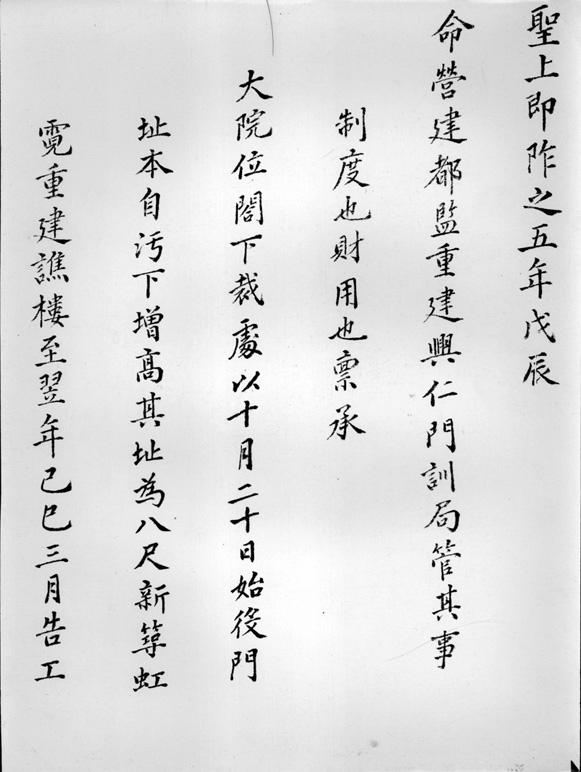 聖上即阼之五年戊辰
命營建都監重建興仁門訓局管其事
制度也財用也稟承
大院位閤下裁處以十月二十日始役門
址本自汚下增高其址為八尺新築虹
霓重建譙樓至翌年己巳三月告工